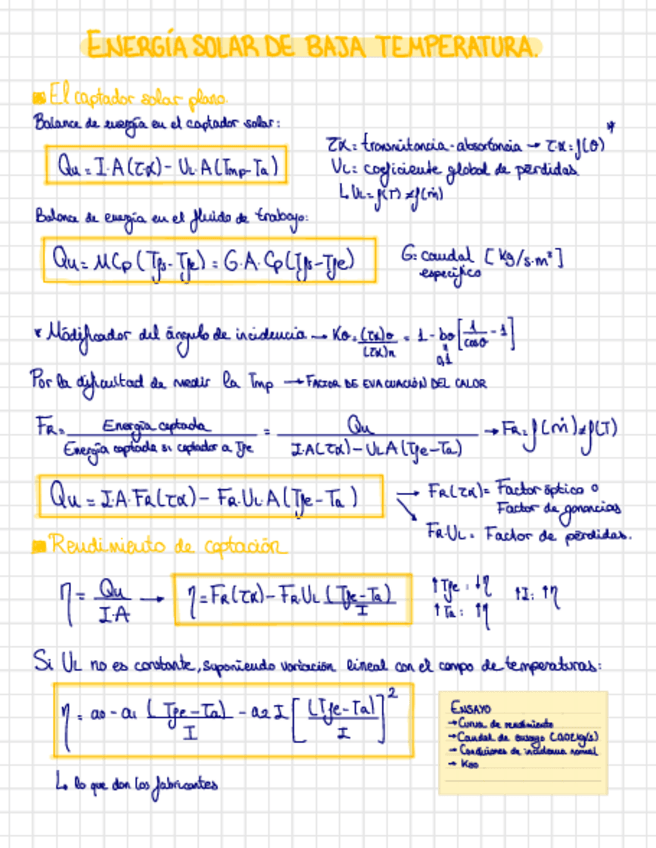 ENERGÍA SOLAR DE BAJA TEMPERATURA.
El captador solar plano.
Balance de energía en el captador solar:
Qu = I·A(τα) - UL·A(Tmp-Ta)
τα = transmitancia-absortancia → τα = f(θ) *
UL = coeficiente global de pérdidas
↳ UL = f(T) ≠ f(ṁ)
Balance de energía en el fluido de trabajo:
Qu = MCp(Tfs-Tfe) = G·A·Cp(Tfs-Tfe)
G: caudal [kg/s·m²]
específico
* Modificador del ángulo de incidencia → Kθ = (τα)θ / (τα)n = 1 - bo [1/cosθ - 1]
0,1
Por la dificultad de medir la Tmp → FACTOR DE EVACUACIÓN DEL CALOR
FR = Energía captada / Energía captada si captador a Tfe = Qu / I·A(τα) - UL·A(Tfe-Ta) → FR = f(ṁ) ≠ f(T)
Qu = I·A·FR(τα) - FR·UL·A(Tfe-Ta)
→ FR(τα) = Factor óptico o
Factor de ganancias
FR·UL = Factor de pérdidas.
Rendimiento de captación
η = Qu / I·A → η = FR(τα) - FRUL (Tfe-Ta) / I
↑Tfe: ↓η
↑Ta: ↑η
↑I: ↑η
Si UL no es constante, suponiendo variación lineal con el campo de temperaturas:
η = a0 - a1 (Tfe-Ta) / I - a2 I [(Tfe-Ta) / I]²
↳ lo que dan los fabricantes
ENSAYO
→ Curva de rendimiento
→ Caudal de ensayo
→ Condiciones de incidencia normal